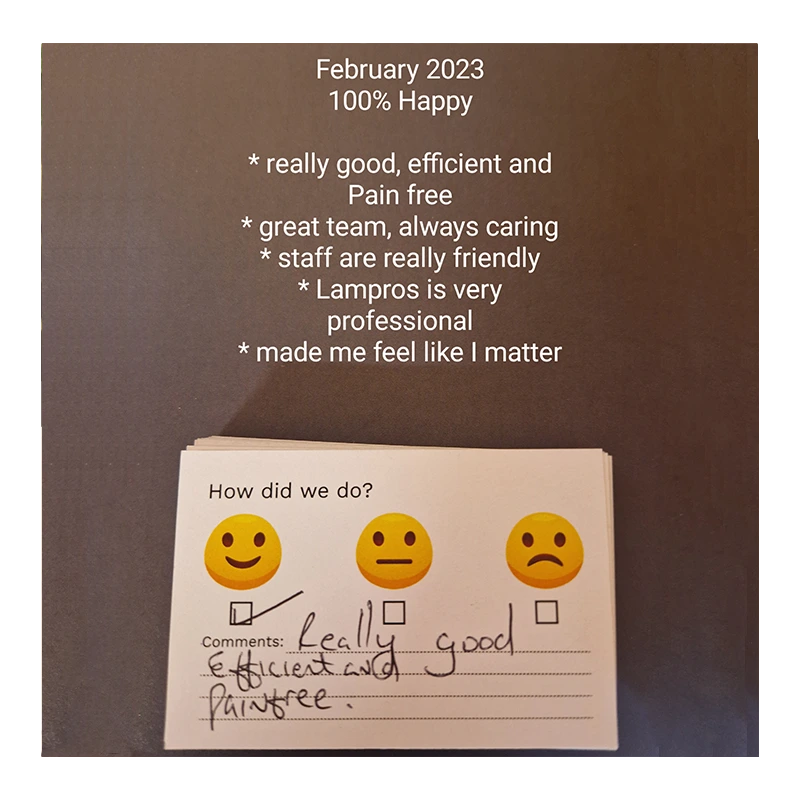 February 2023
100% Happy
* really good, efficient and
Pain free
* great team, always caring
* staff are really friendly
* Lampros is very
professional
* made me feel like I matter
How did we do?
Comments: Really good
Efficient and
Painfree.